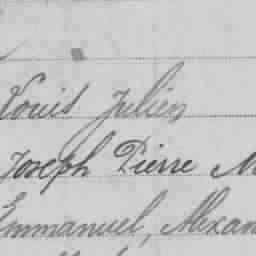 Louis Julien
Joseph Pierre M
Emmanuel, Alexan